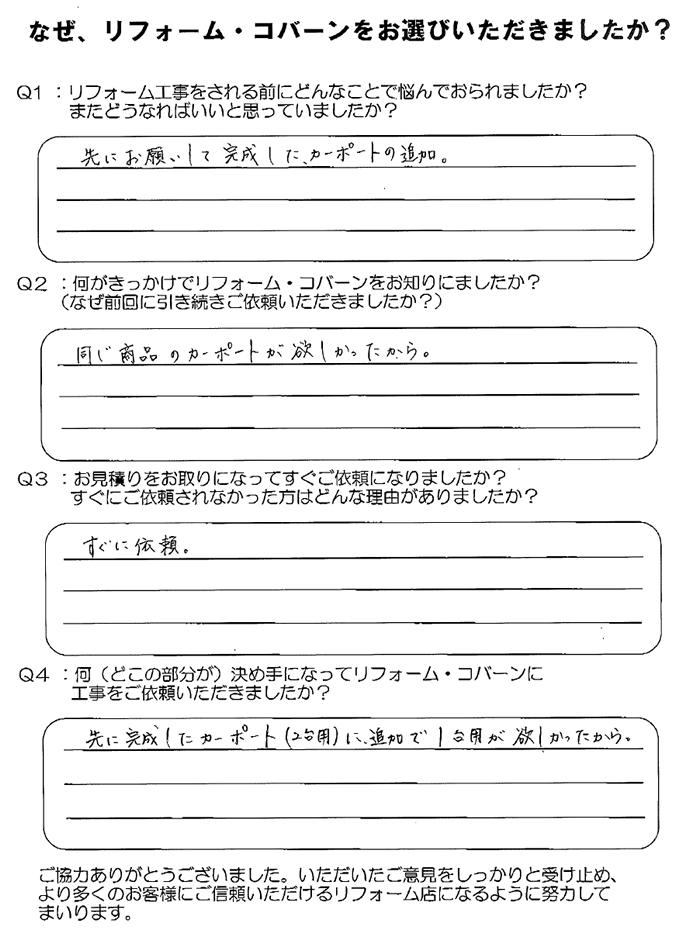 なぜ、リフォーム・コバーンをお選びいただきましたか？
Q1 ：リフォーム工事をされる前にどんなことで悩んでおられましたか？
またどうなればいいと思っていましたか？
先にお願いして完成した、カーポートの追加。
Q2 ：何がきっかけでリフォーム・コバーンをお知りにましたか？
（なぜ前回に引き続きご依頼いただきましたか？）
同じ商品のカーポートが欲しかったから。
Q3 ：お見積りをお取りになってすぐご依頼になりましたか？
すぐにご依頼されなかった方はどんな理由がありましたか？
すぐに依頼。
Q4 ：何（どこの部分が）決め手になってリフォーム・コバーンに
工事をご依頼いただきましたか？
先に完成したカーポート（2台用）に、追加で1台用が欲しかったから。
ご協力ありがとうございました。いただいたご意見をしっかりと受け止め、
より多くのお客様にご信頼いただけるリフォーム店になるように努力して
まいります。